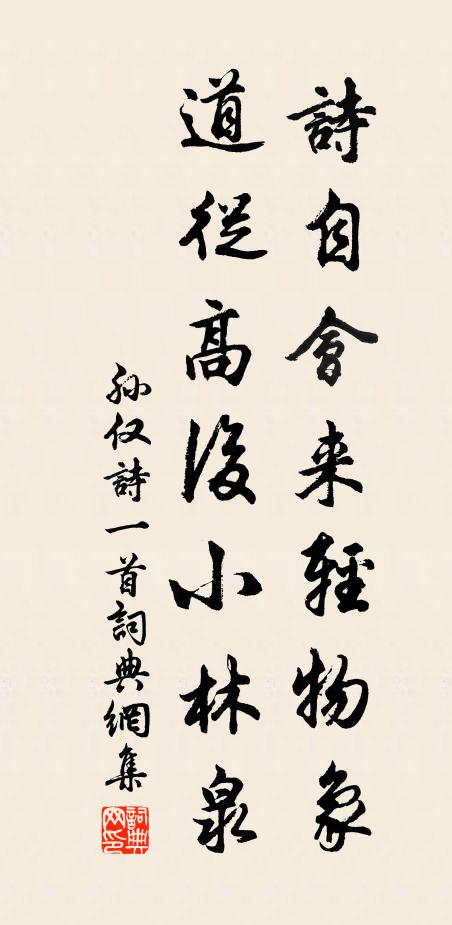 詩自會来輕物象
道從高後小林泉
孙仅詩一首詞典網集
詞典網印